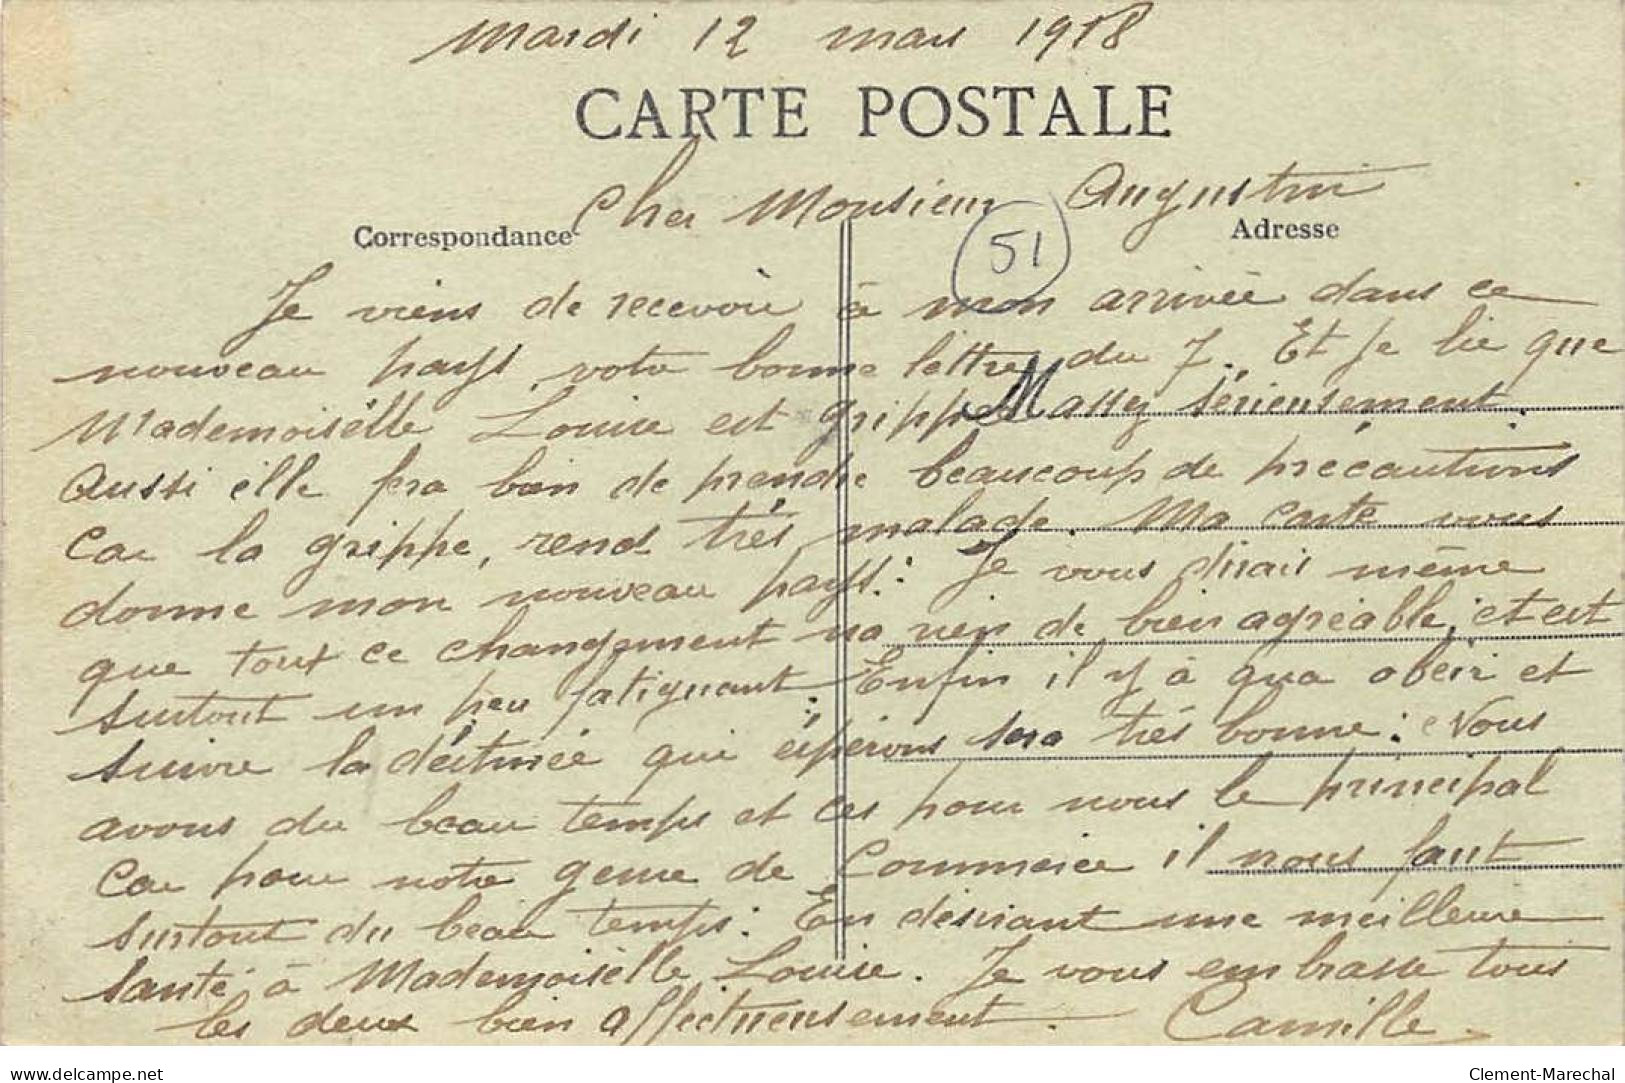 Mardi 12 mars 1918
CARTE POSTALE
Cher Monsieur Augustin
Correspondance
Adresse
51
Je viens de recevoir à mon arrivée dans ce
nouveau pays, votre bonne lettre du 7. Et je lie que
Mademoiselle Louise est grippé assez sérieusement.
Aussi elle fera bien de prendre beaucoup de précautions
Car la grippe, rend très malade. Ma carte vous
donne mon nouveau pays: Je vous dirais même
que tout ce changement na rien de bien agréable, et est
surtout un peu fatiguant: Enfin il y à qua obeir et
suivre la destinée qui espérons sera très bonne: Nous
avons du beau temps et ces pour nous le principal
Car pour notre genre de Commerce il nous faut
surtout du beau temps: En désirant une meilleure
santé à Mademoiselle Louise. Je vous embrasse tous
les deux bien affectueusement. Camille
delcampe.net
Clement-Marechal